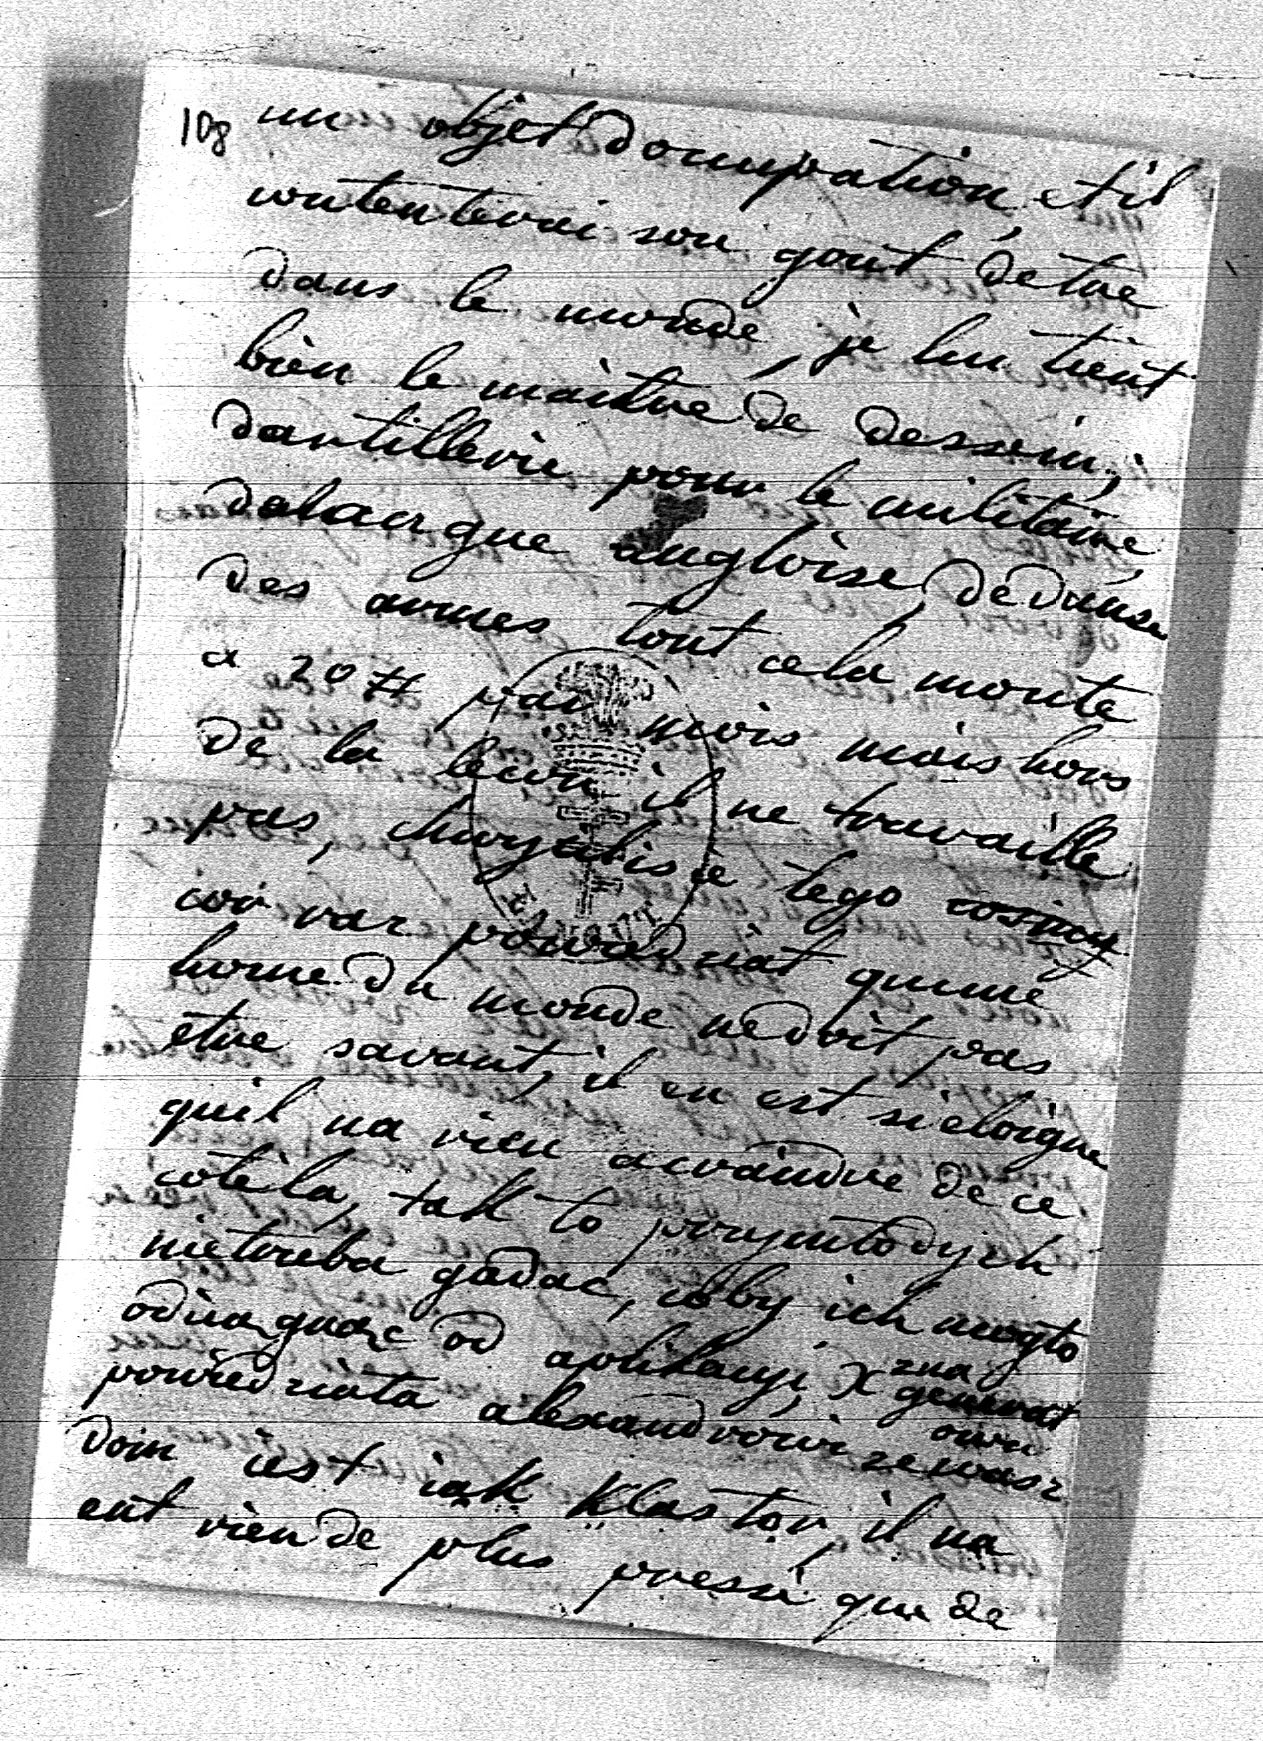 108
un objet docupation, et il
contenterai son gout detre
dans le monde, je lui tient
bien le maitre de dessein,
dartillerie pour le militaire,
delangue angloise, dedanse
des armes tout cela monte
a 20 # par mois mais hors
de la lecon il ne travaille
pas, chwycilisie tego
coś raz powiedział quune
home du monde nedoit pas
etre savant, il en est si eloigne
quil na rien acraindre de ce
cotéla, tak to przymłodych
nietrzeba gadac, coby ich mogło
odiia od aplikacyi, X zna
generał
powiedziała alexandrowi ze wasz
dom iest iak Klasztor, il na
eut rien de plus pressé que de